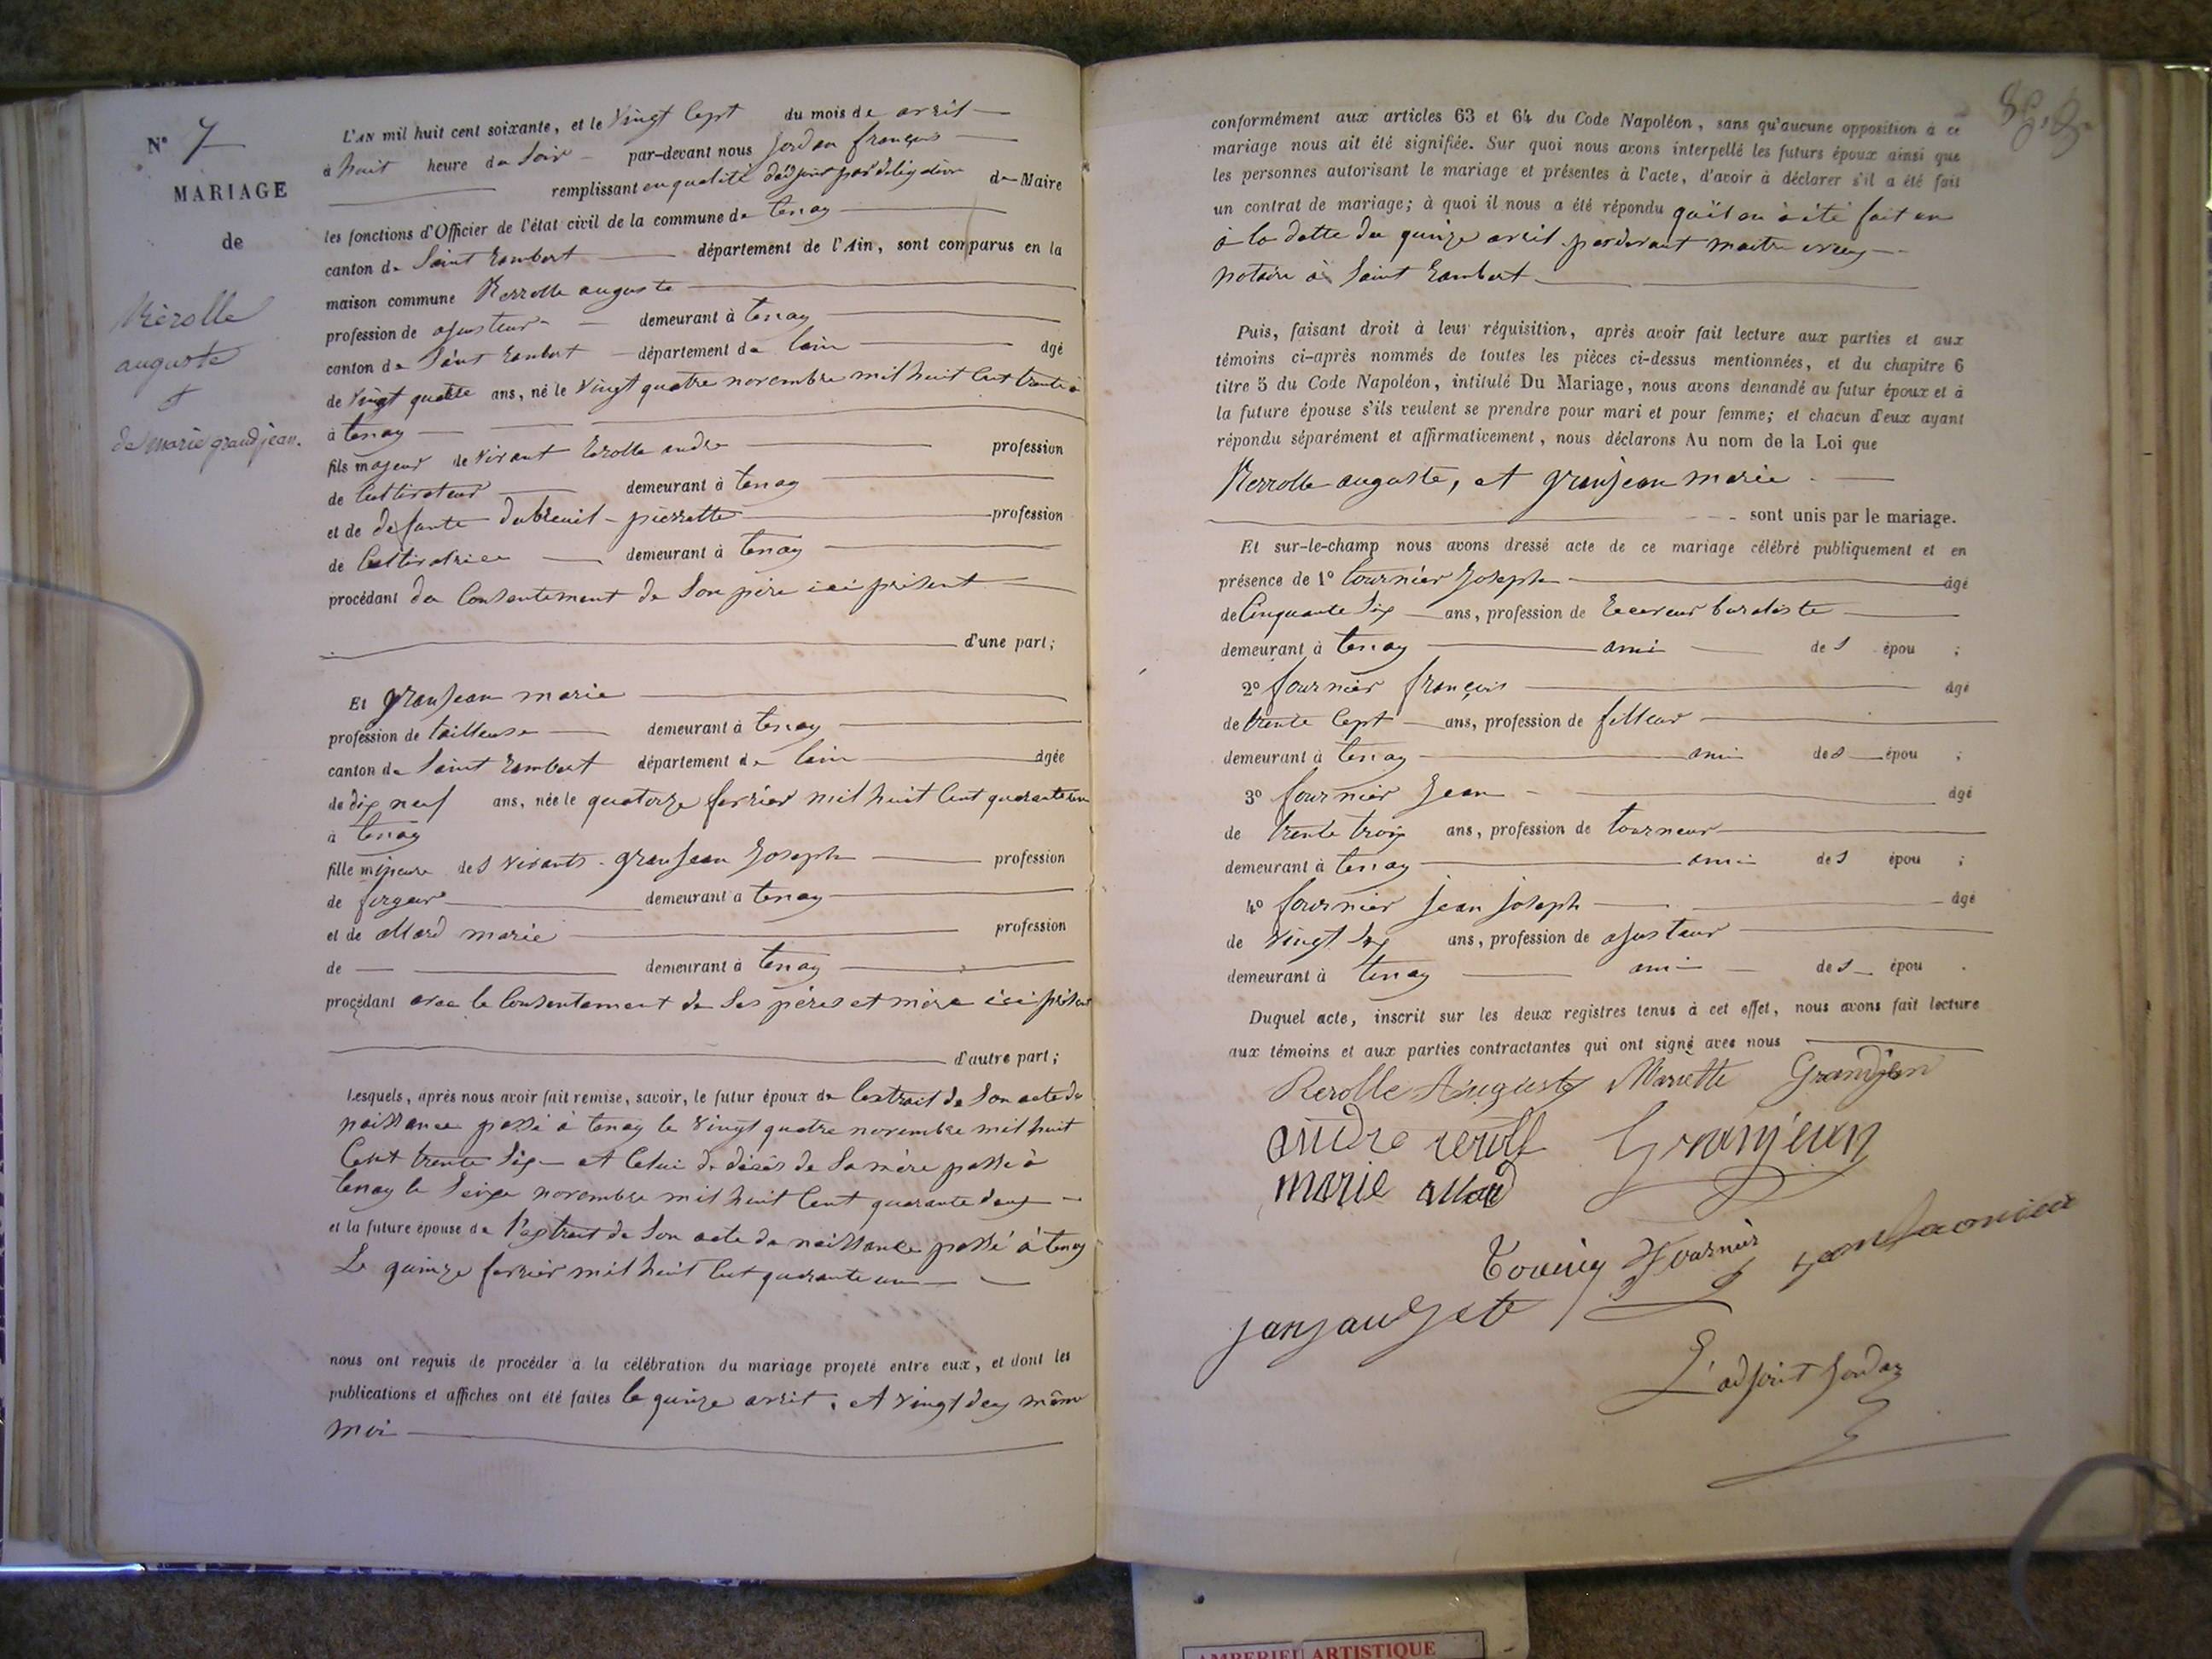 N° 7
MARIAGE
de
Rérolle
auguste
et
de marie grandjean.
L'AN mil huit cent soixante, et le Vingt Sept du mois de avril
à huit heure du Soir par-devant nous Jordan françois
remplissant en qualité d'adjoint par déligation de Maire
les fonctions d'Officier de l'état civil de la commune de tenay
canton de Saint Rambert département de l'Ain, sont comparus en la
maison commune Rerrolle auguste
profession de ajusteur demeurant à tenay
canton de Saint Rambert département de lain âgé
de Vingt quatre ans, né le Vingt quatre novembre mil huit Cent trente
à tenay
fils majeur de Vivant Rerolle andre profession
de Cultivateur demeurant à tenay
et de défunte dubreuil pierrette profession
de Cultivatrice demeurant à tenay
procédant du Consentement de Son père ici présent
d'une part;
Et granjean marie
profession de tailleuse demeurant à tenay
canton de Saint Rambert département de lain âgée
de dix neuf ans, née le quatorze ferrier mil huit Cent quarante un
à tenay
fille mineure des Vivants granjean Joseph profession
de forgeur demeurant à tenay
et de allard marie profession
de demeurant à tenay
procédant avec le Consentement de Ses pères et mère ici présent
d'autre part;
Lesquels, après nous avoir fait remise, savoir, le futur époux de lextrait de Son acte de
naissance passé à tenay le Vingt quatre novembre mil huit
Cent trente Six et Celui de décès de Sa mère passé à
tenay le Seize novembre mil huit Cent quarante deux
et la future épouse de l'extrait de Son acte de naissance passé à tenay
Le quinze ferrier mil huit Cent quarante un
nous ont requis de procéder à la célébration du mariage projeté entre eux, et dont les
publications et affiches ont été faites le quinze avril, et vingt deux même
moi
conformément aux articles 63 et 64 du Code Napoléon, sans qu'aucune opposition à ce
mariage nous ait été signifiée. Sur quoi nous avons interpellé les futurs époux ainsi que
les personnes autorisant le mariage et présentes à l'acte, d'avoir à déclarer s'il a été fait
un contrat de mariage; à quoi il nous a été répondu qu'il en à été fait un
à la datte du quinze avril pardevant maitre
notaire à Saint Rambert
Puis, faisant droit à leur réquisition, après avoir fait lecture aux parties et aux
témoins ci-après nommés de toutes les pièces ci-dessus mentionnées, et du chapitre 6
titre 5 du Code Napoléon, intitulé Du Mariage, nous avons demandé au futur époux et à
la future épouse s'ils veulent se prendre pour mari et pour femme; et chacun d'eux ayant
répondu séparément et affirmativement, nous déclarons Au nom de la Loi que
Rerrolle auguste, et granjean marie
sont unis par le mariage.
Et sur-le-champ nous avons dressé acte de ce mariage célébré publiquement et en
présence de 1° tournier Joseph âgé
de Cinquante Six ans, profession de Receveur buraliste
demeurant à tenay ami des épou ;
2° fournier françois âgé
de trente Sept ans, profession de filleur
demeurant à tenay ami des épou ;
3° fournier Jean âgé
de trente trois ans, profession de tourneur
demeurant à tenay ami des épou ;
4° fournier jean joseph âgé
de Vingt Six ans, profession de ajusteur
demeurant à tenay ami des épou .
Duquel acte, inscrit sur les deux registres tenus à cet effet, nous avons fait lecture
aux témoins et aux parties contractantes qui ont signé avec nous
Rerolle Auguste Mariette Grandjean
andre reroll Granjean
marie allard
Fournier
L'adjoint Jordan
AMBERIEU ARTISTIQUE